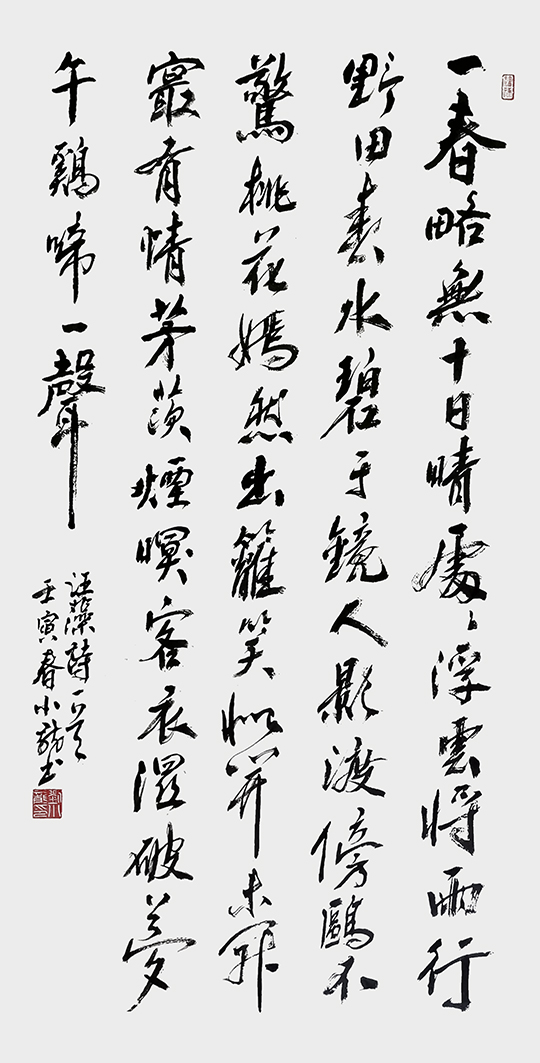 一春略無十日晴處〻浮雲將雨行
野田春水碧于鏡人影渡傍鷗不
驚桃花嫣然出籬笑似開未開
最有情茅茨煙暝客衣濕破夢
午鷄啼一聲
汪藻詩一首
壬寅春小龍書